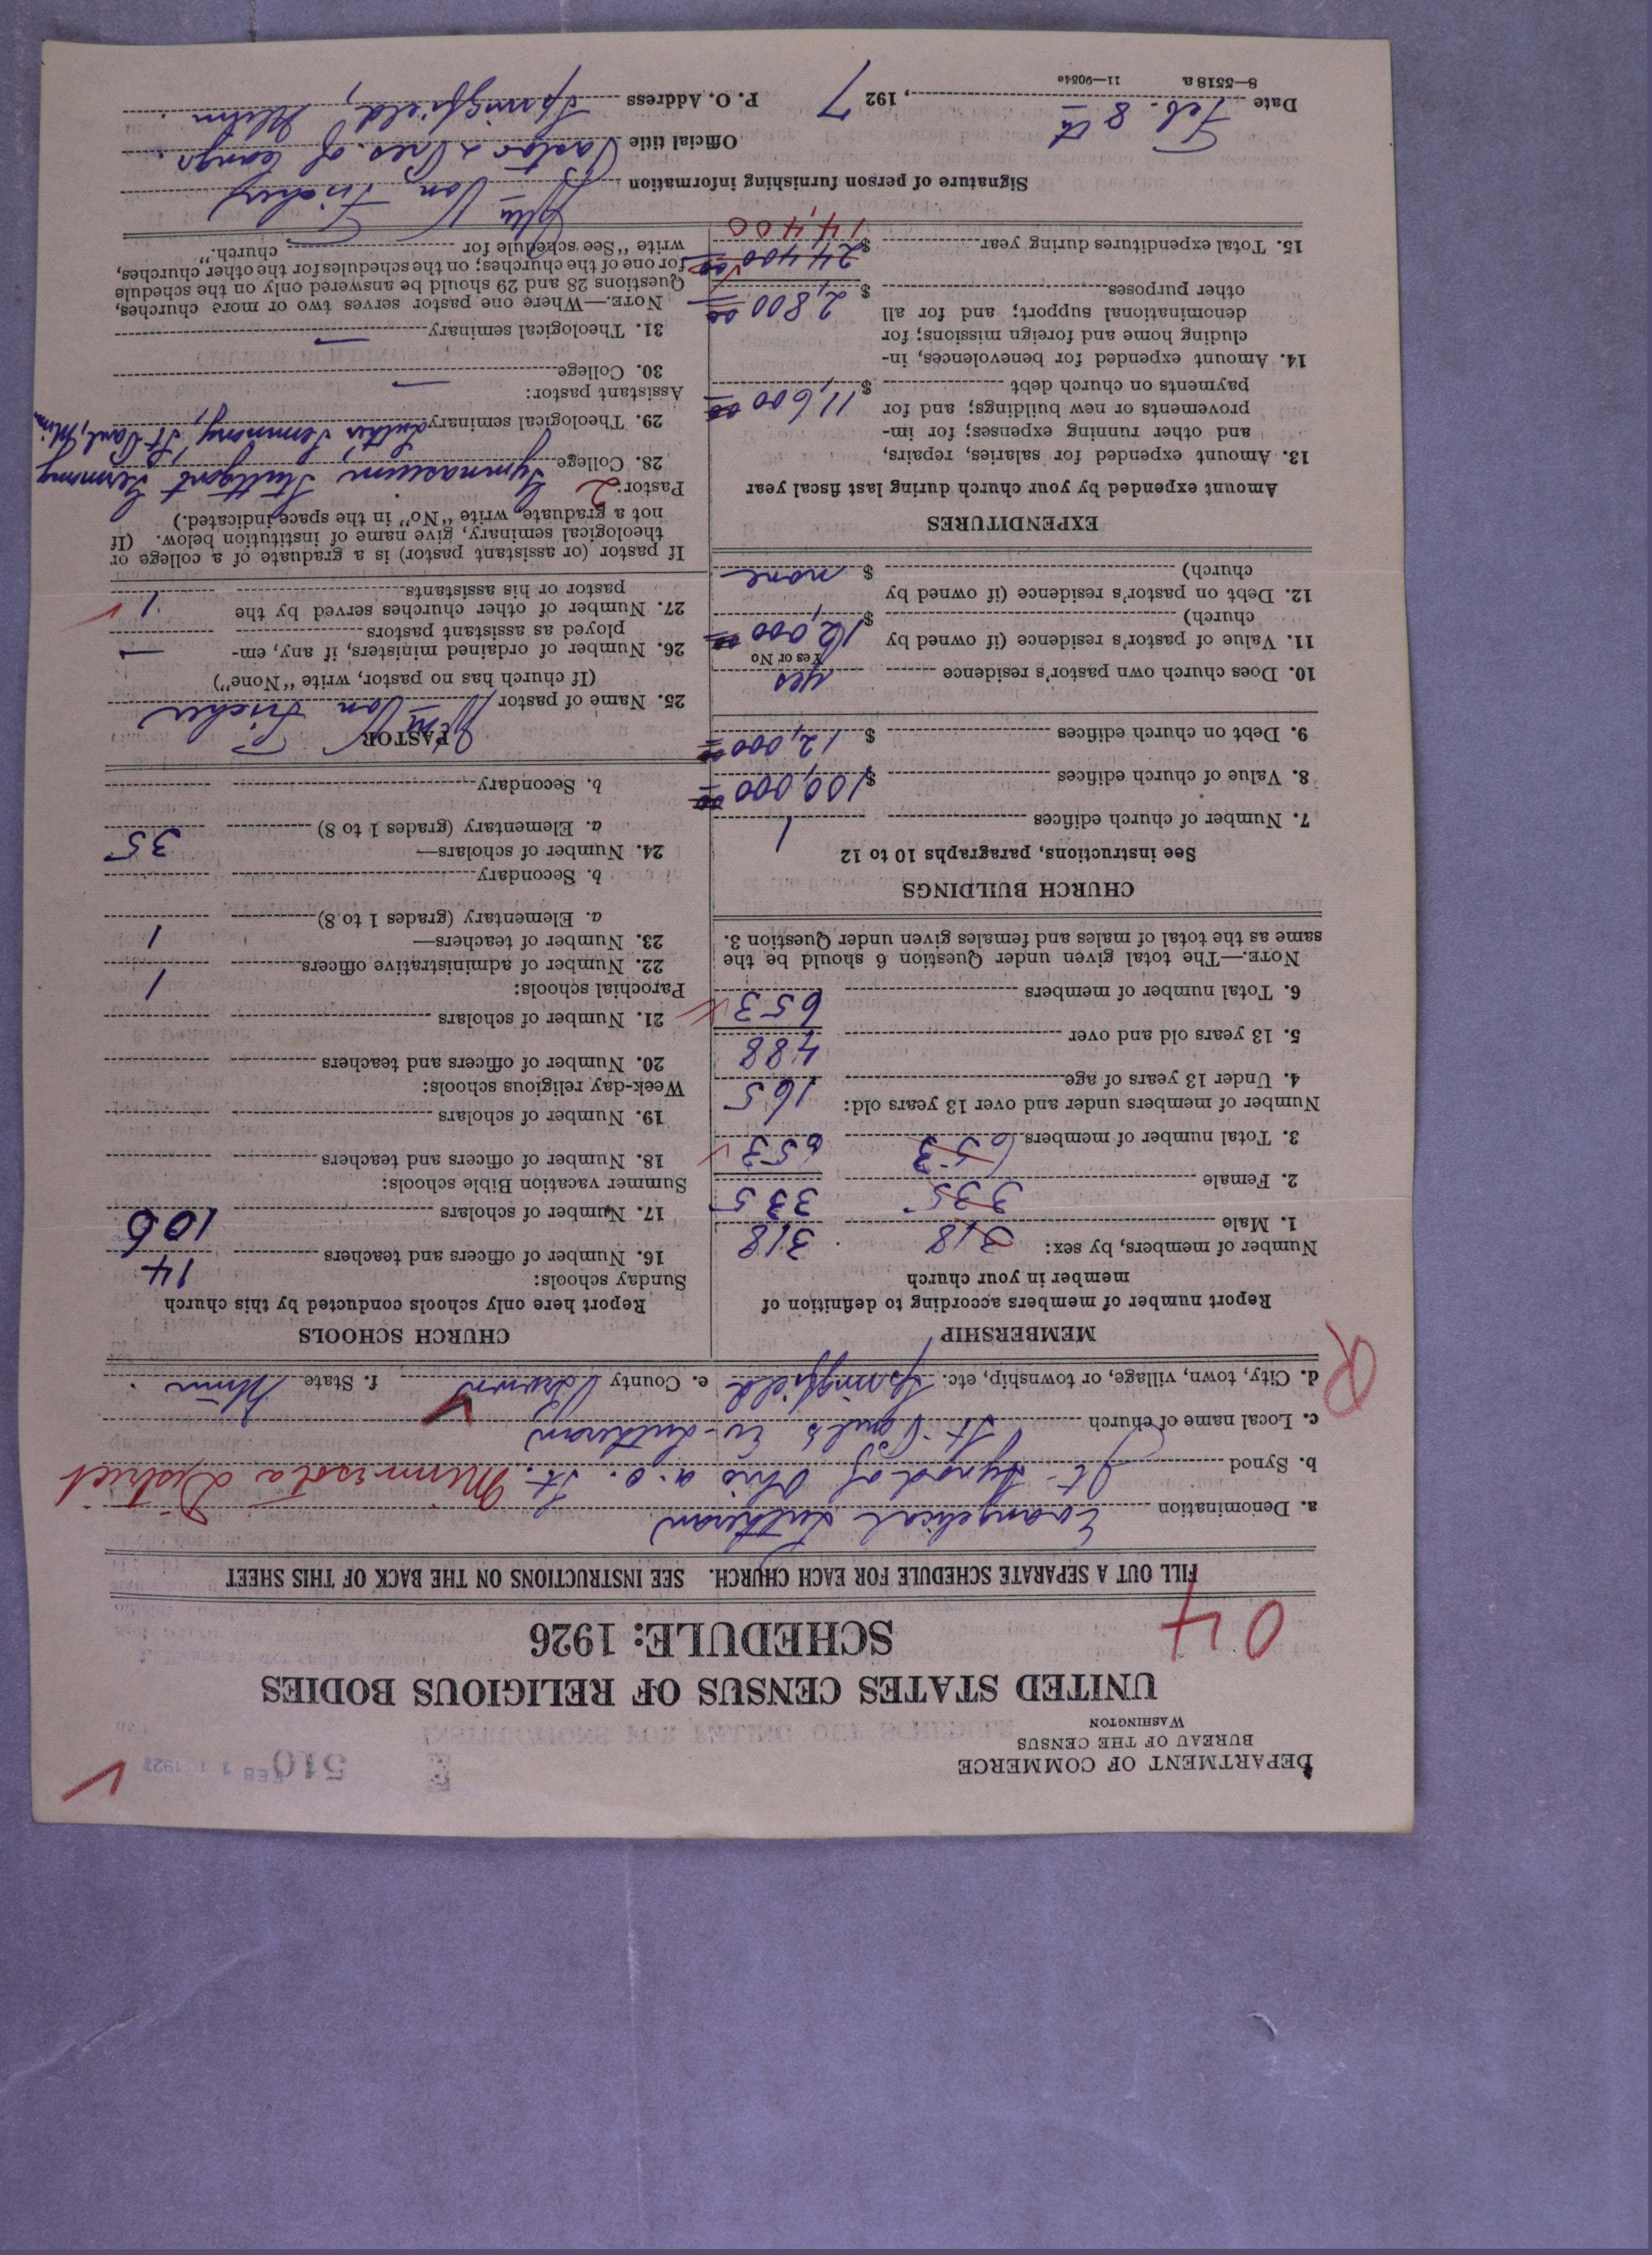 DEPARTMENT OF COMMERCE
BUREAU OF THE CENSUS
WASHINGTON
510
FEB 11 1927
UNITED STATES CENSUS OF RELIGIOUS BODIES
SCHEDULE: 1926
04
FILL OUT A SEPARATE SCHEDULE FOR EACH CHURCH. SEE INSTRUCTIONS ON THE BACK OF THIS SHEET
a. Denomination Evangelical Lutheran
b. Synod Jt. Synod of Ohio a. o. St. Minnesota District
c. Local name of church St. Paul's Ev-Lutheran
d. City, town, village, or township, etc. Springfield e. County Brown f. State Minn.
R
MEMBERSHIP
Report number of members according to definition of
member in your church
Number of members, by sex:
1. Male 318 318
2. Female 335 335
3. Total number of members 653 653
Number of members under and over 13 years old:
4. Under 13 years of age 165
5. 13 years old and over 488
6. Total number of members 653
NOTE.—The total given under Question 6 should be the
same as the total of males and females given under Question 3.
CHURCH BUILDINGS
See instructions, paragraphs 10 to 12
7. Number of church edifices 1
8. Value of church edifices $100,000 00
9. Debt on church edifices $ 12,000 00
10. Does church own pastor's residence yes
Yes or No
11. Value of pastor's residence (if owned by
church) $ 12,000 00
12. Debt on pastor's residence (if owned by
church) $ none
EXPENDITURES
Amount expended by your church during last fiscal year
13. Amount expended for salaries, repairs,
and other running expenses; for im-
provements or new buildings; and for
payments on church debt $ 11,600 00
14. Amount expended for benevolences, in-
cluding home and foreign missions; for
denominational support; and for all
other purposes $ 2,800 00
15. Total expenditures during year $ 24,400 00
14,400
CHURCH SCHOOLS
Report here only schools conducted by this church
Sunday schools:
16. Number of officers and teachers 14
17. Number of scholars 106
Summer vacation Bible schools:
18. Number of officers and teachers
19. Number of scholars
Week-day religious schools:
20. Number of officers and teachers
21. Number of scholars
Parochial schools:
22. Number of administrative officers 1
23. Number of teachers—
a. Elementary (grades 1 to 8) 1
b. Secondary
24. Number of scholars—
a. Elementary (grades 1 to 8) 35
b. Secondary
PASTOR
25. Name of pastor Wm Von Fischer
(If church has no pastor, write "None")
26. Number of ordained ministers, if any, em-
ployed as assistant pastors —
27. Number of other churches served by the
pastor or his assistants 1
If pastor (or assistant pastor) is a graduate of a college or
theological seminary, give name of institution below. (If
not a graduate, write "No" in the space indicated.)
Pastor: 2
28. College Gymnasium, Stuttgart Germany
29. Theological seminary Luther Seminary, St Paul, Minn
Assistant pastor:
30. College —
31. Theological seminary —
NOTE.—Where one pastor serves two or more churches,
Questions 28 and 29 should be answered only on the schedule
for one of the churches; on the schedules for the other churches,
write "See schedule for church."
Signature of person furnishing information Wm Von Fischer
Official title Pastor & Pres. of Congr.
Date Feb. 8th, 1927 P. O. Address Springfield, Minn.
8—5518 a 11—9084c